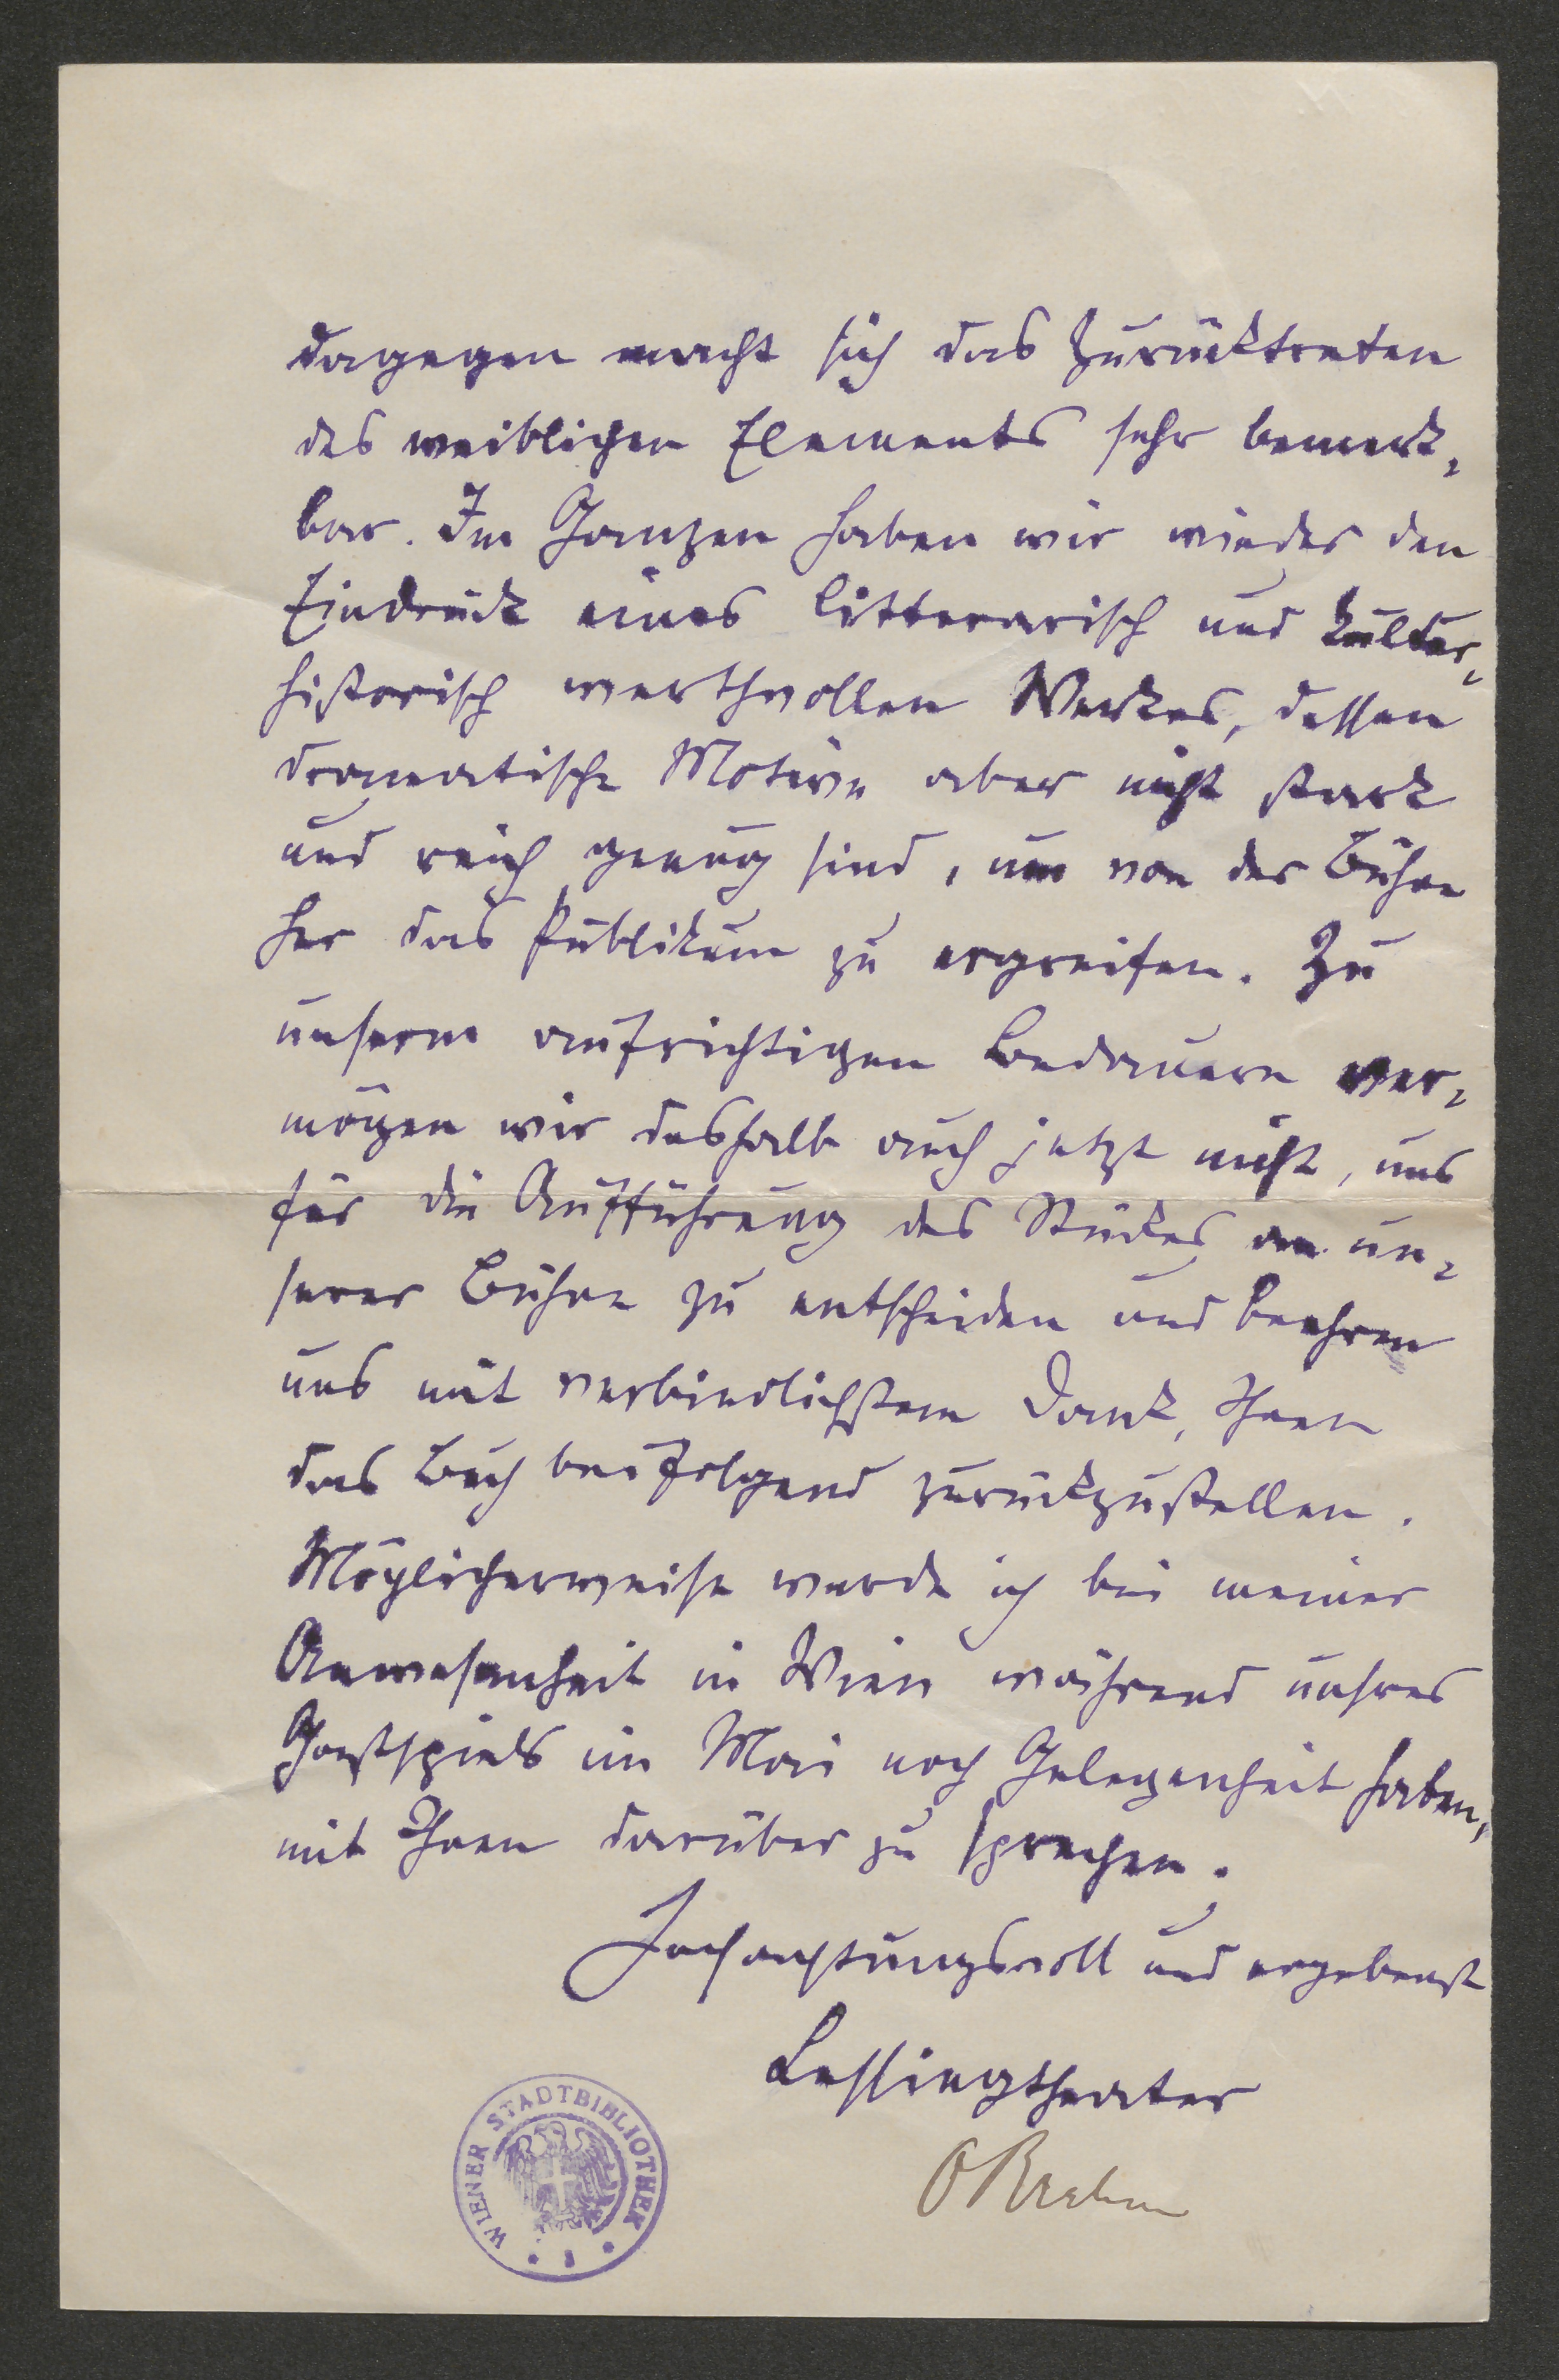 dagegen macht sich das Zurücktreten
des weiblichen Elements sehr bemerk-
bar. Im Ganzen haben wir wieder den
Eindruck eines litterarisch und kultur-
historisch werthvollen Werkes, dessen
dramatische Motive aber nicht stark
und reich genug sind, um von der Bühne
her das Publikum zu ergreifen. Zu
unserm aufrichtigen Bedauern ver-
mögen wir deshalb auch jetzt nicht, uns
für die Aufführung des Stückes an un-
serer Bühne zu entscheiden und beehren
uns mit verbindlichstem Dank, Ihnen
das Buch beifolgend zurückzustellen.
Möglicherweise werde ich bei meiner
Anwesenheit in Wien während unsres
Gastspiels im Mai noch Gelegenheit haben,
mit Ihnen darüber zu sprechen.
Hochachtungsvoll und ergebenst
Lessingtheater
O Brahm
WIENER STADTBIBLIOTHEK